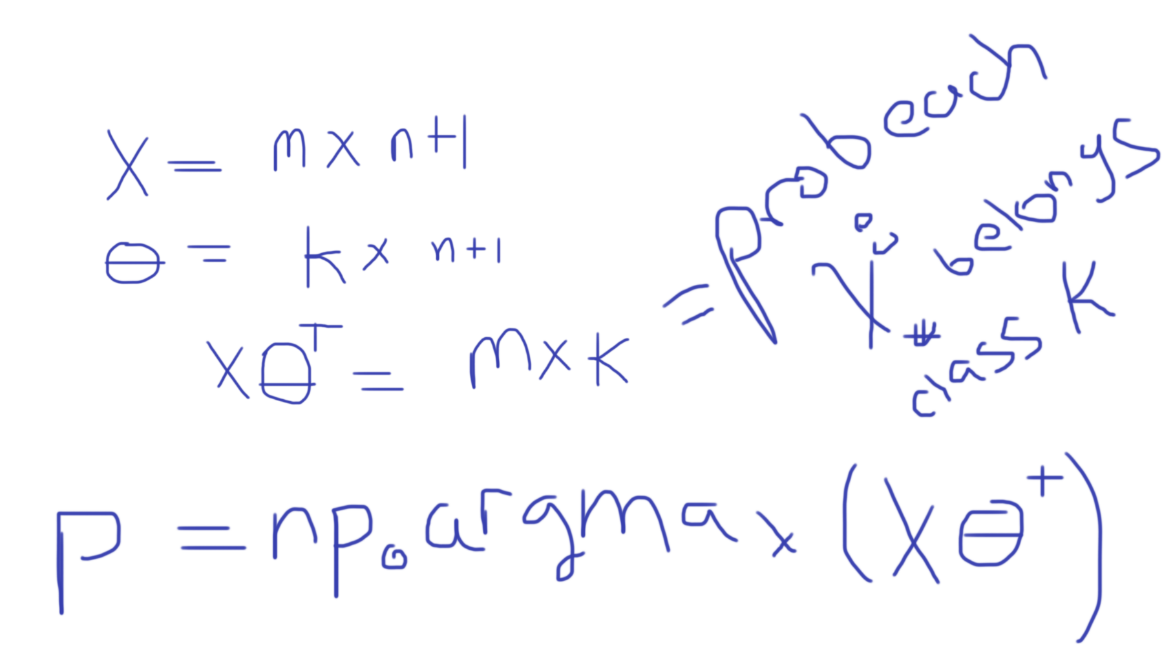 X = m x n+1
θ = k x n+1
Xθᵀ = m x k
= prob each
Xⁱ belongs
class K
P = np.argmax(Xθᵀ)